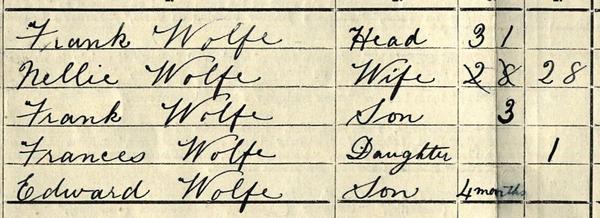 Frank Wolfe Head 31
Nellie Wolfe Wife 28 28
Frank Wolfe Son 3
Frances Wolfe Daughter 1
Edward Wolfe Son 4 months